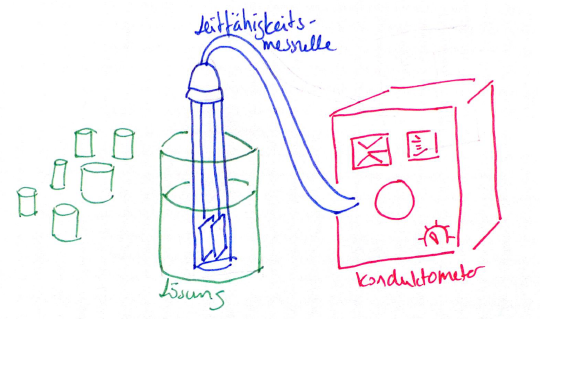 Leitfähigkeits-
messzelle
Lösung
Konduktometer